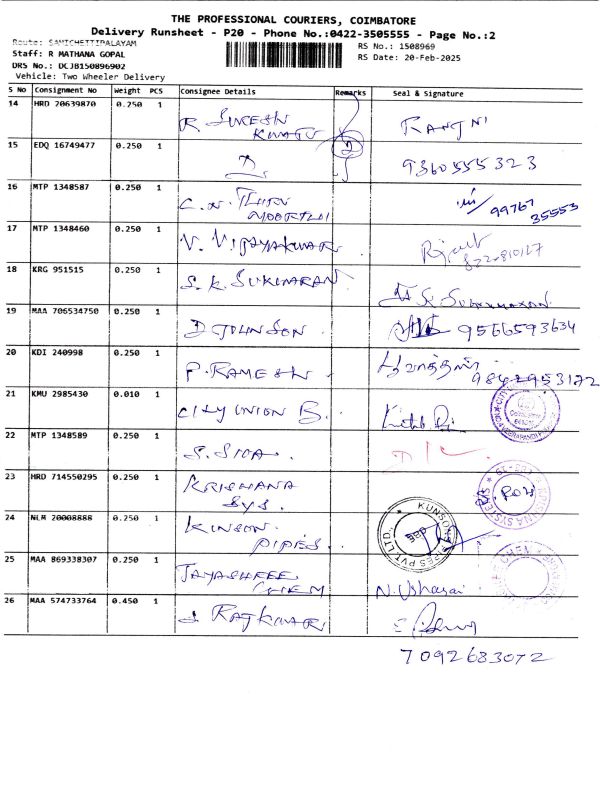 THE PROFESSIONAL COURIERS, COIMBATORE
Delivery Runsheet - P20 - Phone No.:0422-3505555 - Page No.:2
Route: SAMICHETTIPALAYAM
Staff: R MATHANA GOPAL
RS No.: 1508969
DRS No.: DCJB150896902
RS Date: 20-Feb-2025
Vehicle: Two Wheeler Delivery
S No Consignment No Weight PCS Consignee Details Remarks Seal & Signature
14 HRD 20639870 0.250 1 R SURESH KUMAR RANJNI
15 EDQ 16749477 0.250 1 2 9360555323
16 MTP 1348587 0.250 1 C.N. THIRU MOORTHI 99767 35553
17 MTP 1348460 0.250 1 V. VIJAYAKUMAR
18 KRG 951515 0.250 1 S. K. SUKUMARAN
19 MAA 706534750 0.250 1 D JOHNSON 9566593634
20 KDI 240998 0.250 1 P. RAMESH 9842953172
21 KMU 2985430 0.010 1 CITY UNION B.
22 MTP 1348589 0.250 1 S. SIVA
23 HRD 714550295 0.250 1 KRISHANA SYS.
24 NLM 20008888 0.250 1 KINSON PIPES
25 MAA 869338307 0.250 1 JAYASHREE CHEM N. Usharai
26 MAA 574733764 0.450 1 S RAJKUMAR
7092683072